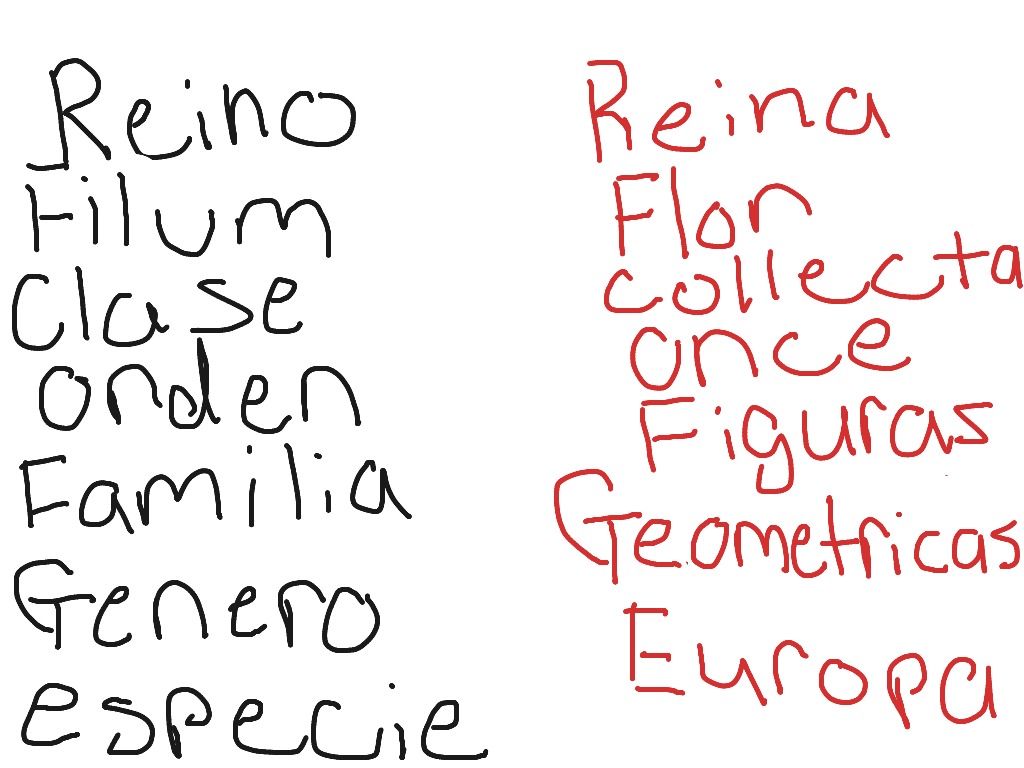 Reino
Filum
Clase
orden
Familia
Genero
especie
Reina
Flor
collecta
once
Figuras
Geometricas
Europa